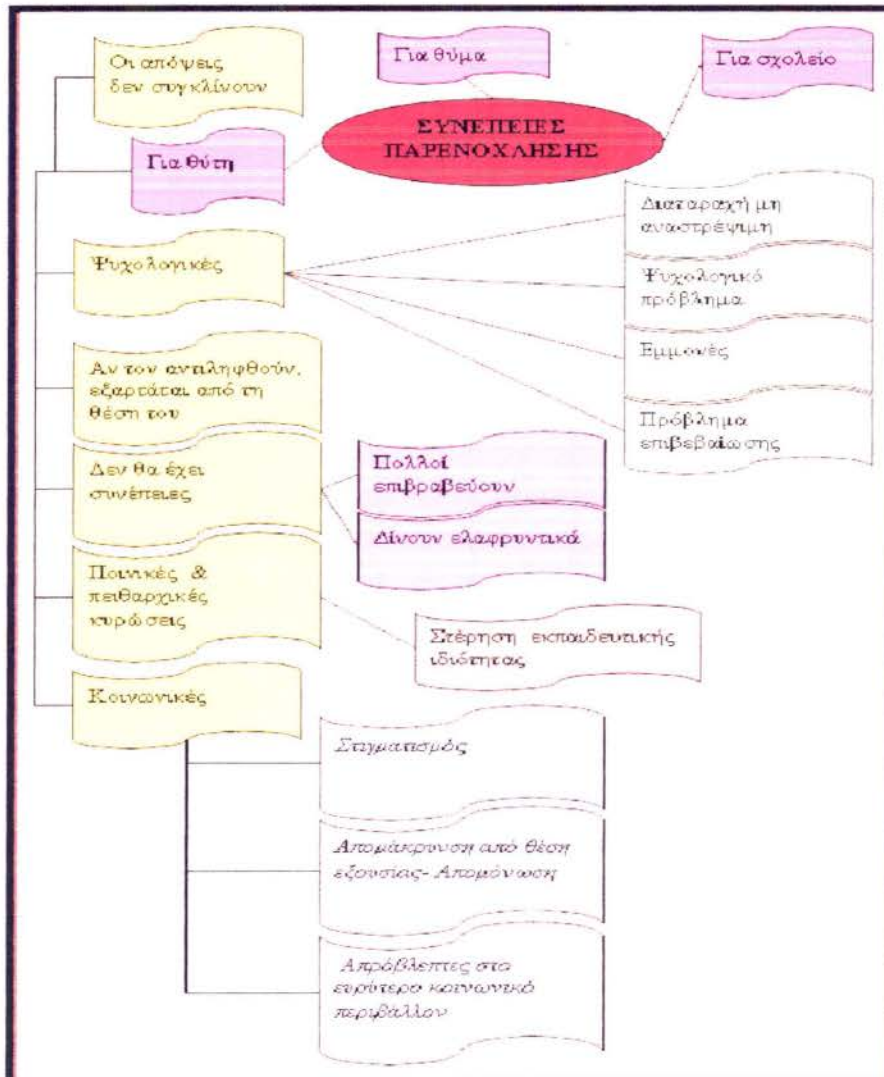 Οι απόψεις
δεν συγκλίνουν
Για θύμα
Για σχολείο
ΣΥΝΕΠΕΙΕΣ
ΠΑΡΕΝΟΧΛΗΣΗΣ
Για θύτη
Ψυχολογικές
Διαταραχή μη
αναστρέψιμη
Ψυχολογικό
πρόβλημα
Εμμονές
Πρόβλημα
επιβεβαίωσης
Αν τον αντιληφθούν,
εξαρτάται από τη
θέση του
Δεν θα έχει
συνέπειες
Πολλοί
επιβραβεύουν
Δίνουν ελαφρυντικά
Ποινικές &
πειθαρχικές
κυρώσεις
Στέρηση εκπαιδευτικής
ιδιότητας
Κοινωνικές
Στιγματισμός
Απομάκρυνση από θέση
εξουσίας- Απομόνωση
Απρόβλεπτες στο
ευρύτερο κοινωνικό
περιβάλλον